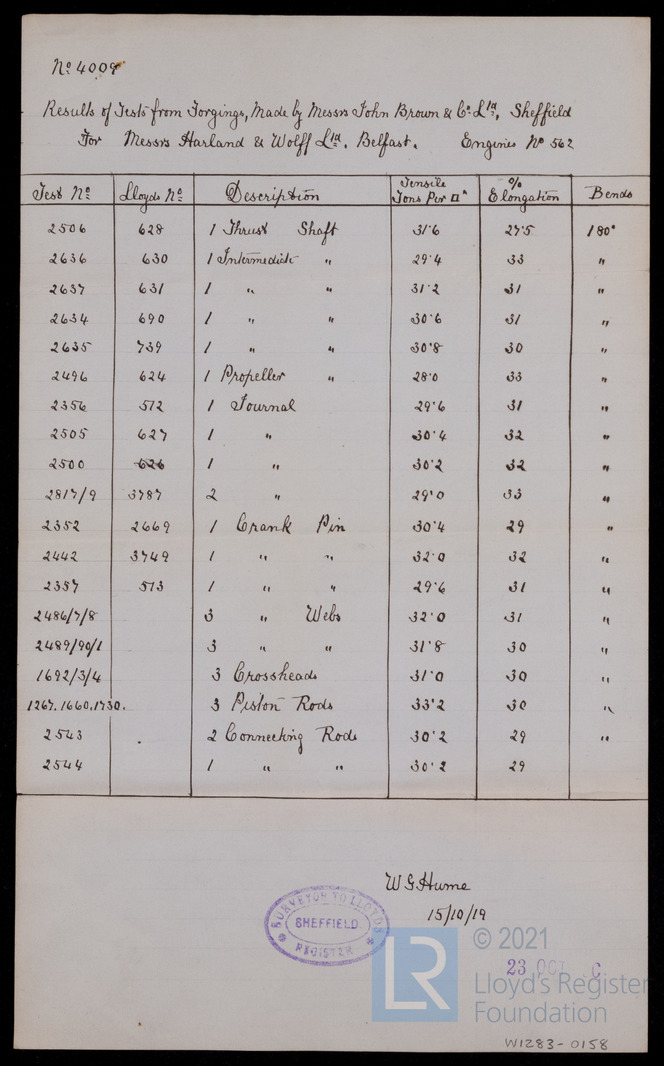 No 4009
Results of Tests from Forgings, Made by Messrs John Brown & Co. Ltd, Sheffield
For Messrs Harland & Wolff Ltd. Belfast. Engines No 562
Test No Lloyds No Description Tensile Tons Per □" % Elongation Bends
2506 628 1 Thrust Shaft 31.6 27.5 180°
2636 630 1 Intermediate " 29.4 33 "
2637 631 1 " " 31.2 31 "
2634 690 1 " " 30.6 31 "
2635 739 1 " " 30.8 30 "
2496 624 1 Propeller " 28.0 33 "
2356 512 1 Journal 29.6 31 "
2505 627 1 " 30.4 32 "
2500 626 1 " 30.2 32 "
2817/9 3787 2 " 29.0 33 "
2352 2669 1 Crank Pin 30.4 29 "
2442 3749 1 " " 32.0 32 "
2357 513 1 " " 29.6 31 "
2486/7/8 3 " Webs 32.0 31 "
2489/90/1 3 " " 31.8 30 "
1692/3/4 3 Crossheads 31.0 30 "
1267.1660.1730. 3 Piston Rods 33.2 30 "
2543 2 Connecting Rods 30.2 29 "
2544 1 " " 30.2 29
W G Hume
15/10/19
SURVEYOR TO LLOYDS
SHEFFIELD
REGISTER
23 OCT
LR
© 2021
Lloyd's Register
Foundation
W1283-0158